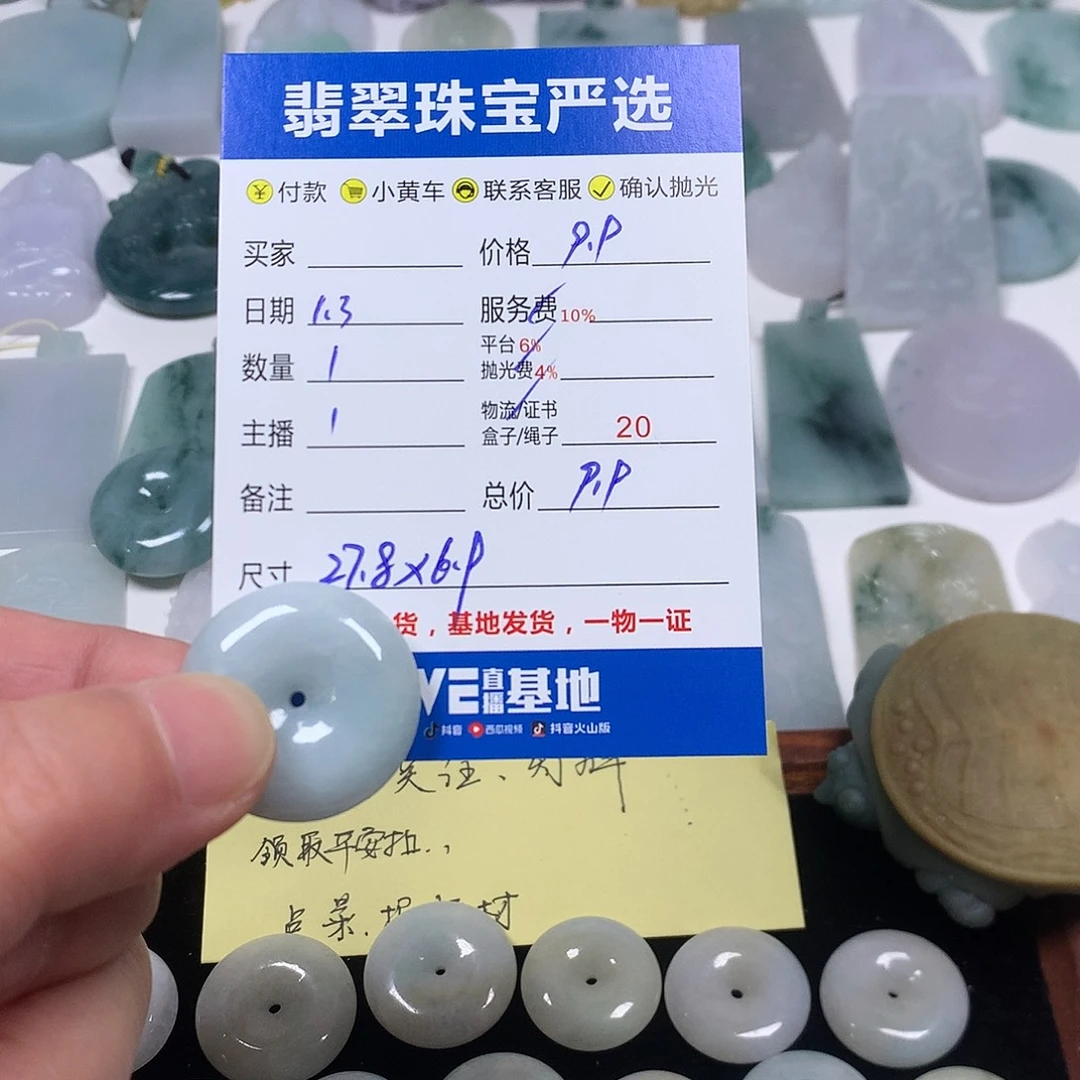 翡翠珠宝严选
付款 小黄车 联系客服 确认抛光
买家 价格 9.9
日期 1.3 服务费 10%
数量 1 平台 6%
抛光费 4%
主播 1 物流/证书
盒子/绳子 20
备注 总价 9.9
尺寸 27.8×6.9
货，基地发货，一物一证
VE直播基地
抖音 西瓜视频 抖音火山版
关注、
领取平安扣
点菜